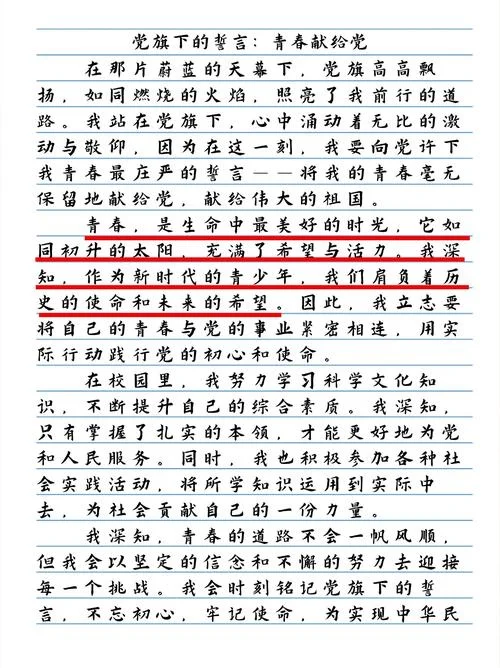 党旗下的誓言：青春献给党
在那片蔚蓝的天幕下，党旗高高飘
扬，如同燃烧的火焰，照亮了我前行的道
路。我站在党旗下，心中涌动着无比的激
动与敬仰，因为在这一刻，我要向党许下
我青春最庄严的誓言——将我的青春毫无
保留地献给党，献给伟大的祖国。
青春，是生命中最美好的时光，它如
同初升的太阳，充满了希望与活力。我深
知，作为新时代的青少年，我们肩负着历
史的使命和未来的希望。因此，我立志要
将自己的青春与党的事业紧密相连，用实
际行动践行党的初心和使命。
在校园里，我努力学习科学文化知
识，不断提升自己的综合素质。我深知，
只有掌握了扎实的本领，才能更好地为党
和人民服务。同时，我也积极参加各种社
会实践活动，将所学知识运用到实际中
去，为社会贡献自己的一份力量。
我深知，青春的道路不会一帆风顺，
但我会以坚定的信念和不懈的努力去迎接
每一个挑战。我会时刻铭记党旗下的誓
言，不忘初心，牢记使命，为实现中华民